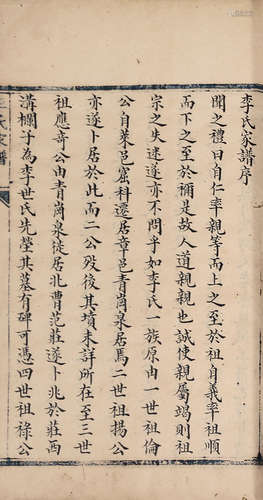 李氏家譜序
聞之禮曰自仁率親等而上之至於祖自義率祖順
而下之至於禰是故人道親親也誠使親屬竭則祖
宗之失迷遂亦不問乎如李氏一族原由一世祖倫
公自萊邑窟科遷居章邑青崗泉居焉二世祖揚公
亦遂卜居於此而二公歿後其墳未詳所在至三世
祖應奇公由青崗泉徙居北曹范莊遂卜兆於莊西
溝欄子為李世氏先塋其墓有碑可憑四世祖祿公
氏家譜